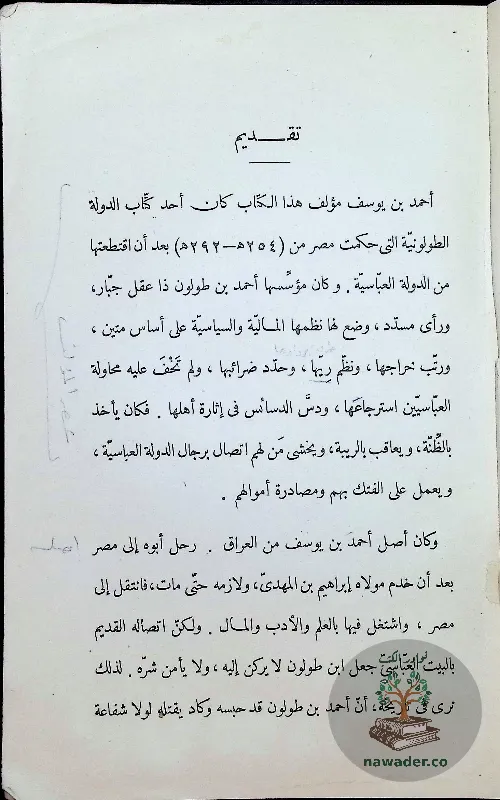 تقـــديم
أحمد بن يوسف مؤلف هذا الكتاب كان أحد كتّاب الدولة
الطولونيّة التى حكمت مصر من (٢٥٤هـ–٢٩٢هـ) بعد أن اقتطعتها
من الدولة العبّاسيّة . وكان مؤسِّسها أحمد بن طولون ذا عقل جبّار،
ورأى مسدّد ، وضع لها نظمها الماليّة والسياسيّة على أساس متين ،
ورتّب خراجها ، ونظّم رِيّها ، وحدّد ضرائبها ، ولم تَخْفَ عليه محاولة
العبّاسيّين استرجاعَها ، ودسَّ الدسائس فى إثارة أهلها . فكان يأخذ
بالظِّنّة، ويعاقب بالريبة، ويخشى مَن لهم اتصال برجال الدولة العباسيّة ،
ويعمل على الفتك بهم ومصادرة أموالهم .
وكان أصل أحمد بن يوسف من العراق . رحل أبوه إلى مصر
بعد أن خدم مولاه إبراهيم بن المهدىّ، ولازمه حتّى مات، فانتقل إلى
مصر ، واشتغل فيها بالعلم والأدب والمـال . ولكنّ اتصاله القديم
بالبيت العبّاسىّ جعل ابن طولون لا يركن إليه ، ولا يأمن شرّه . لذلك
نرى فى تاريخه، أنّ أحمد بن طولون قد حبسه وكاد يقتله لولا شفاعة
nawader.co